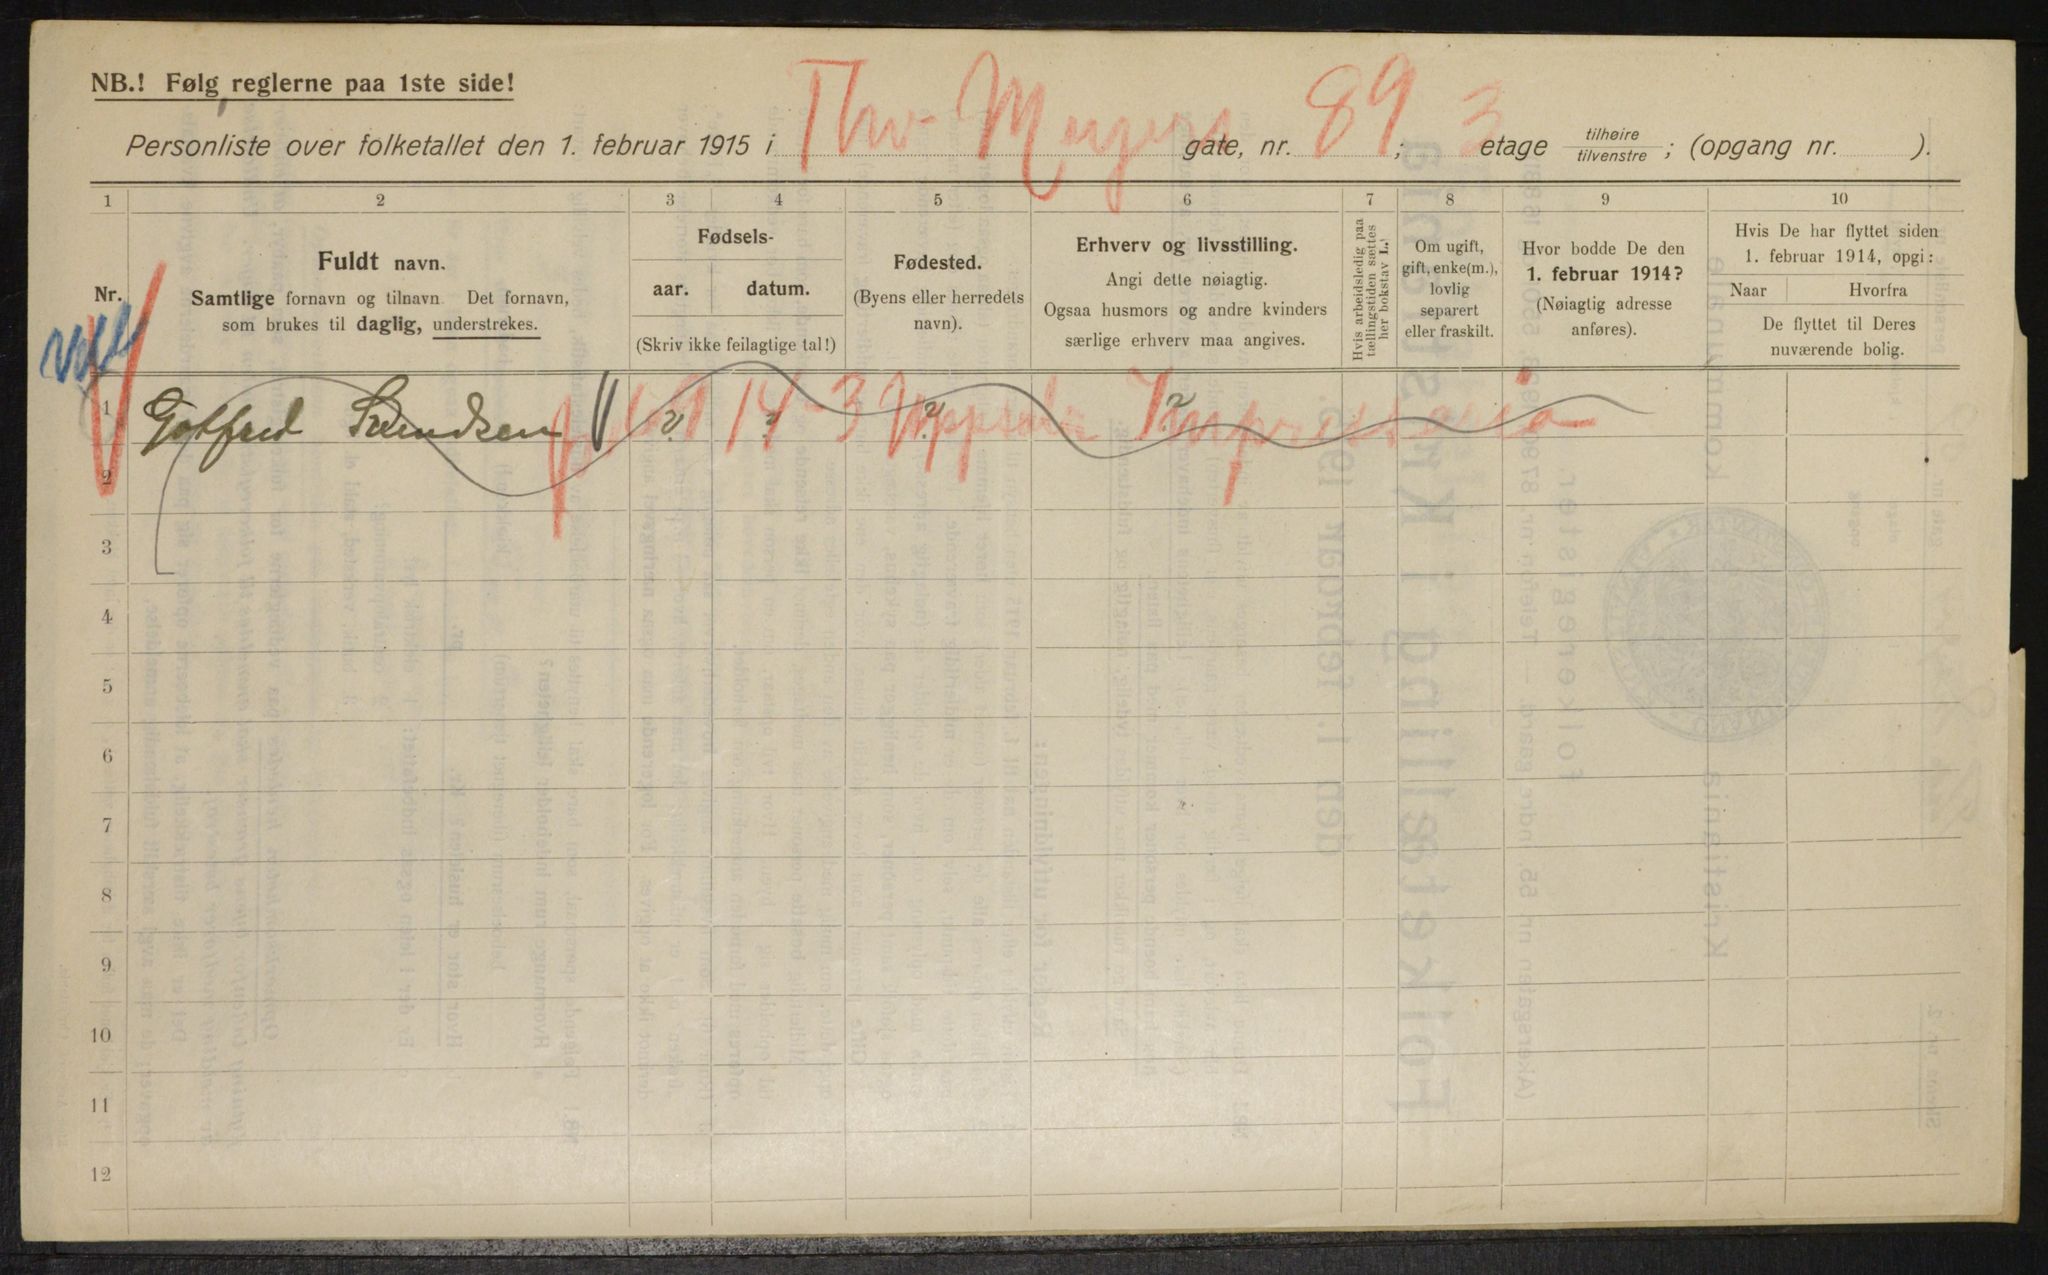 NB.! Følg reglerne paa 1ste side!
Personliste over folketallet den 1. februar 1915 i Thv Meyers gate, nr. 89; 3 etage tilhøire / tilvenstre; (opgang nr. ).
1 2 3 4 5 6 7 8 9 10
Nr.
Fuldt navn.
Samtlige fornavn og tilnavn. Det fornavn,
som brukes til daglig, understrekes.
Fødsels-
aar. datum.
(Skriv ikke feilagtige tal!)
Fødested.
(Byens eller herredets
navn).
Erhverv og livsstilling.
Angi dette nøiagtig.
Ogsaa husmors og andre kvinders
særlige erhverv maa angives.
Hvis arbeidsledig paa
tællingstiden sættes
her bokstav L.
Om ugift,
gift, enke(m.),
lovlig
separert
eller fraskilt.
Hvor bodde De den
1. februar 1914?
(Nøiagtig adresse
anføres).
Hvis De har flyttet siden
1. februar 1914, opgi:
Naar Hvorfra
De flyttet til Deres
nuværende bolig.
1 Gotfred Svendsen ? ? 14-3 ? Uppsala ?
2
3
4
5
6
7
8
9
10
11
12